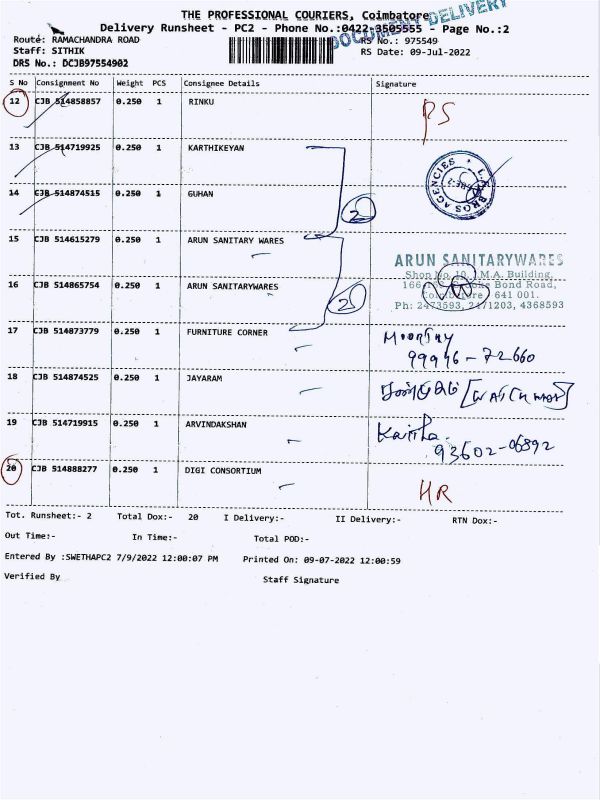 THE PROFESSIONAL COURIERS, Coimbatore
DOCUMENT DELIVERY
Delivery Runsheet - PC2 - Phone No.:0422-3505555 - Page No.:2
Route: RAMACHANDRA ROAD RS No.: 975549
Staff: SITHIK RS Date: 09-Jul-2022
DRS No.: DCJB97554902
S No Consignment No Weight PCS Consignee Details Signature
12 CJB 514858857 0.250 1 RINKU RS
13 CJB 514719925 0.250 1 KARTHIKEYAN
BROS AGENCIES
14 CJB 514874515 0.250 1 GUHAN
2
15 CJB 514615279 0.250 1 ARUN SANITARY WARES
ARUN SANITARYWARES
Shop No. 10, J.M.A. Building,
16 CJB 514865754 0.250 1 ARUN SANITARYWARES
Bond Road,
Coimbatore 641 001.
2
Ph: 2473593, 2471203, 4368593
17 CJB 514873779 0.250 1 FURNITURE CORNER
99946-72660
18 CJB 514874525 0.250 1 JAYARAM [WATCHMAN]
19 CJB 514719915 0.250 1 ARVINDAKSHAN
93602-06892
20 CJB 514888277 0.250 1 DIGI CONSORTIUM
HR
Tot. Runsheet:- 2 Total Dox:- 20 I Delivery:- II Delivery:- RTN Dox:-
Out Time:- In Time:- Total POD:-
Entered By :SWETHAPC2 7/9/2022 12:00:07 PM Printed On: 09-07-2022 12:00:59
Verified By Staff Signature